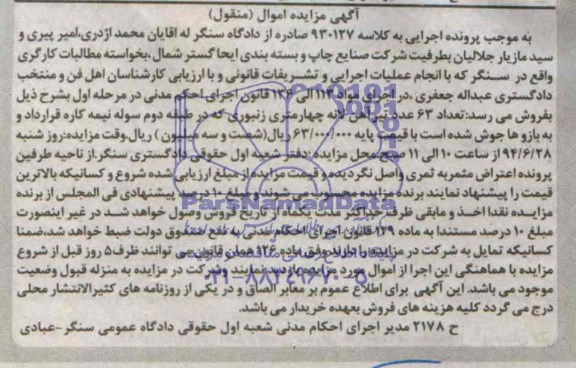 آگهی مزایده اموال (منقول)
به موجب پرونده اجرایی به کلاسه ۹۳۰۱۲۷ صادره از دادگاه سنگر له اقایان محمد اژدری،امیر پیری و
سید مازیار جلالیان بطرفیت شرکت صنایع چاپ و بسته بندی ایحا گستر شمال،بخواسته مطالبات کارگری
واقع در سنگر که با انجام عملیات اجرایی و تشریفات قانونی و با ارزیابی کارشناسان اهل فن و منتخب
دادگستری عبداله جعفری ،در اجرای مواد ۱۱۴ الی ۱۳۶ قانون اجرای احکم مدنی در مرحله اول بشرح ذیل
بفروش می رسد:تعداد ۶۳ عدد تیرآهن لانه چهارمتری زنبوری که در طبقه دوم سوله نیمه کاره قرارداد و
به بازو ها جوش شده است با قیمت پایه ۶۳/۰۰۰/۰۰۰ ریال(شصت و سه میلیون ) ریال.وقت مزایده:روز شنبه
۹۴/۶/۲۸ از ساعت ۱۰ الی ۱۱ صبح.محل مزایده :دفتر شعبه اول حقوقی دادگستری سنگر.از ناحیه طرفین
پرونده اعتراض مثمر به ثمری واصل نگردیده و قیمت مزایده از مبلغ ارزیابی شده شروع و کسانیکه بالاترین
قیمت را پیشنهاد نمایند برنده مزایده محسوب می شوند و مبلغ ۱۰ درصد پیشنهادی فی المجلس از برنده
مزایده نقدا اخذ و مابقی ظرف حداکثر مدت یکماه از تاریخ فروش وصول خواهد شد در غیر اینصورت
مبلغ ۱۰ درصد مستندا به ماده ۱۲۹ قانون اجرای احکام مدنی به نفع صندوق دولت ضبط خواهد شد،ضمنا
کسانیکه تمایل به شرکت در مزایده را دارند وفق ماده ۱۲۶ همان قانون می توانند ظرف ۵ روز قبل از شروع
مزایده با هماهنگی این اجرا از اموال مورد مزایده بازدید نمایند وشرکت در مزایده به منزله قبول وضعیت
موجود می باشد. این آگهی برای اطلاع عموم بر معابر الصاق و در یکی از روزنامه های کثیرالانتشار محلی
درج می گردد کلیه هزینه های فروش بعهده خریدار می باشد.
ح ۲۱۷۸ مدیر اجرای احکام مدنی شعبه اول حقوقی دادگاه عمومی سنگر-عبادی
ParsNamadData
۰۲۱-۸۸۳۴۹۶۷۰-۵